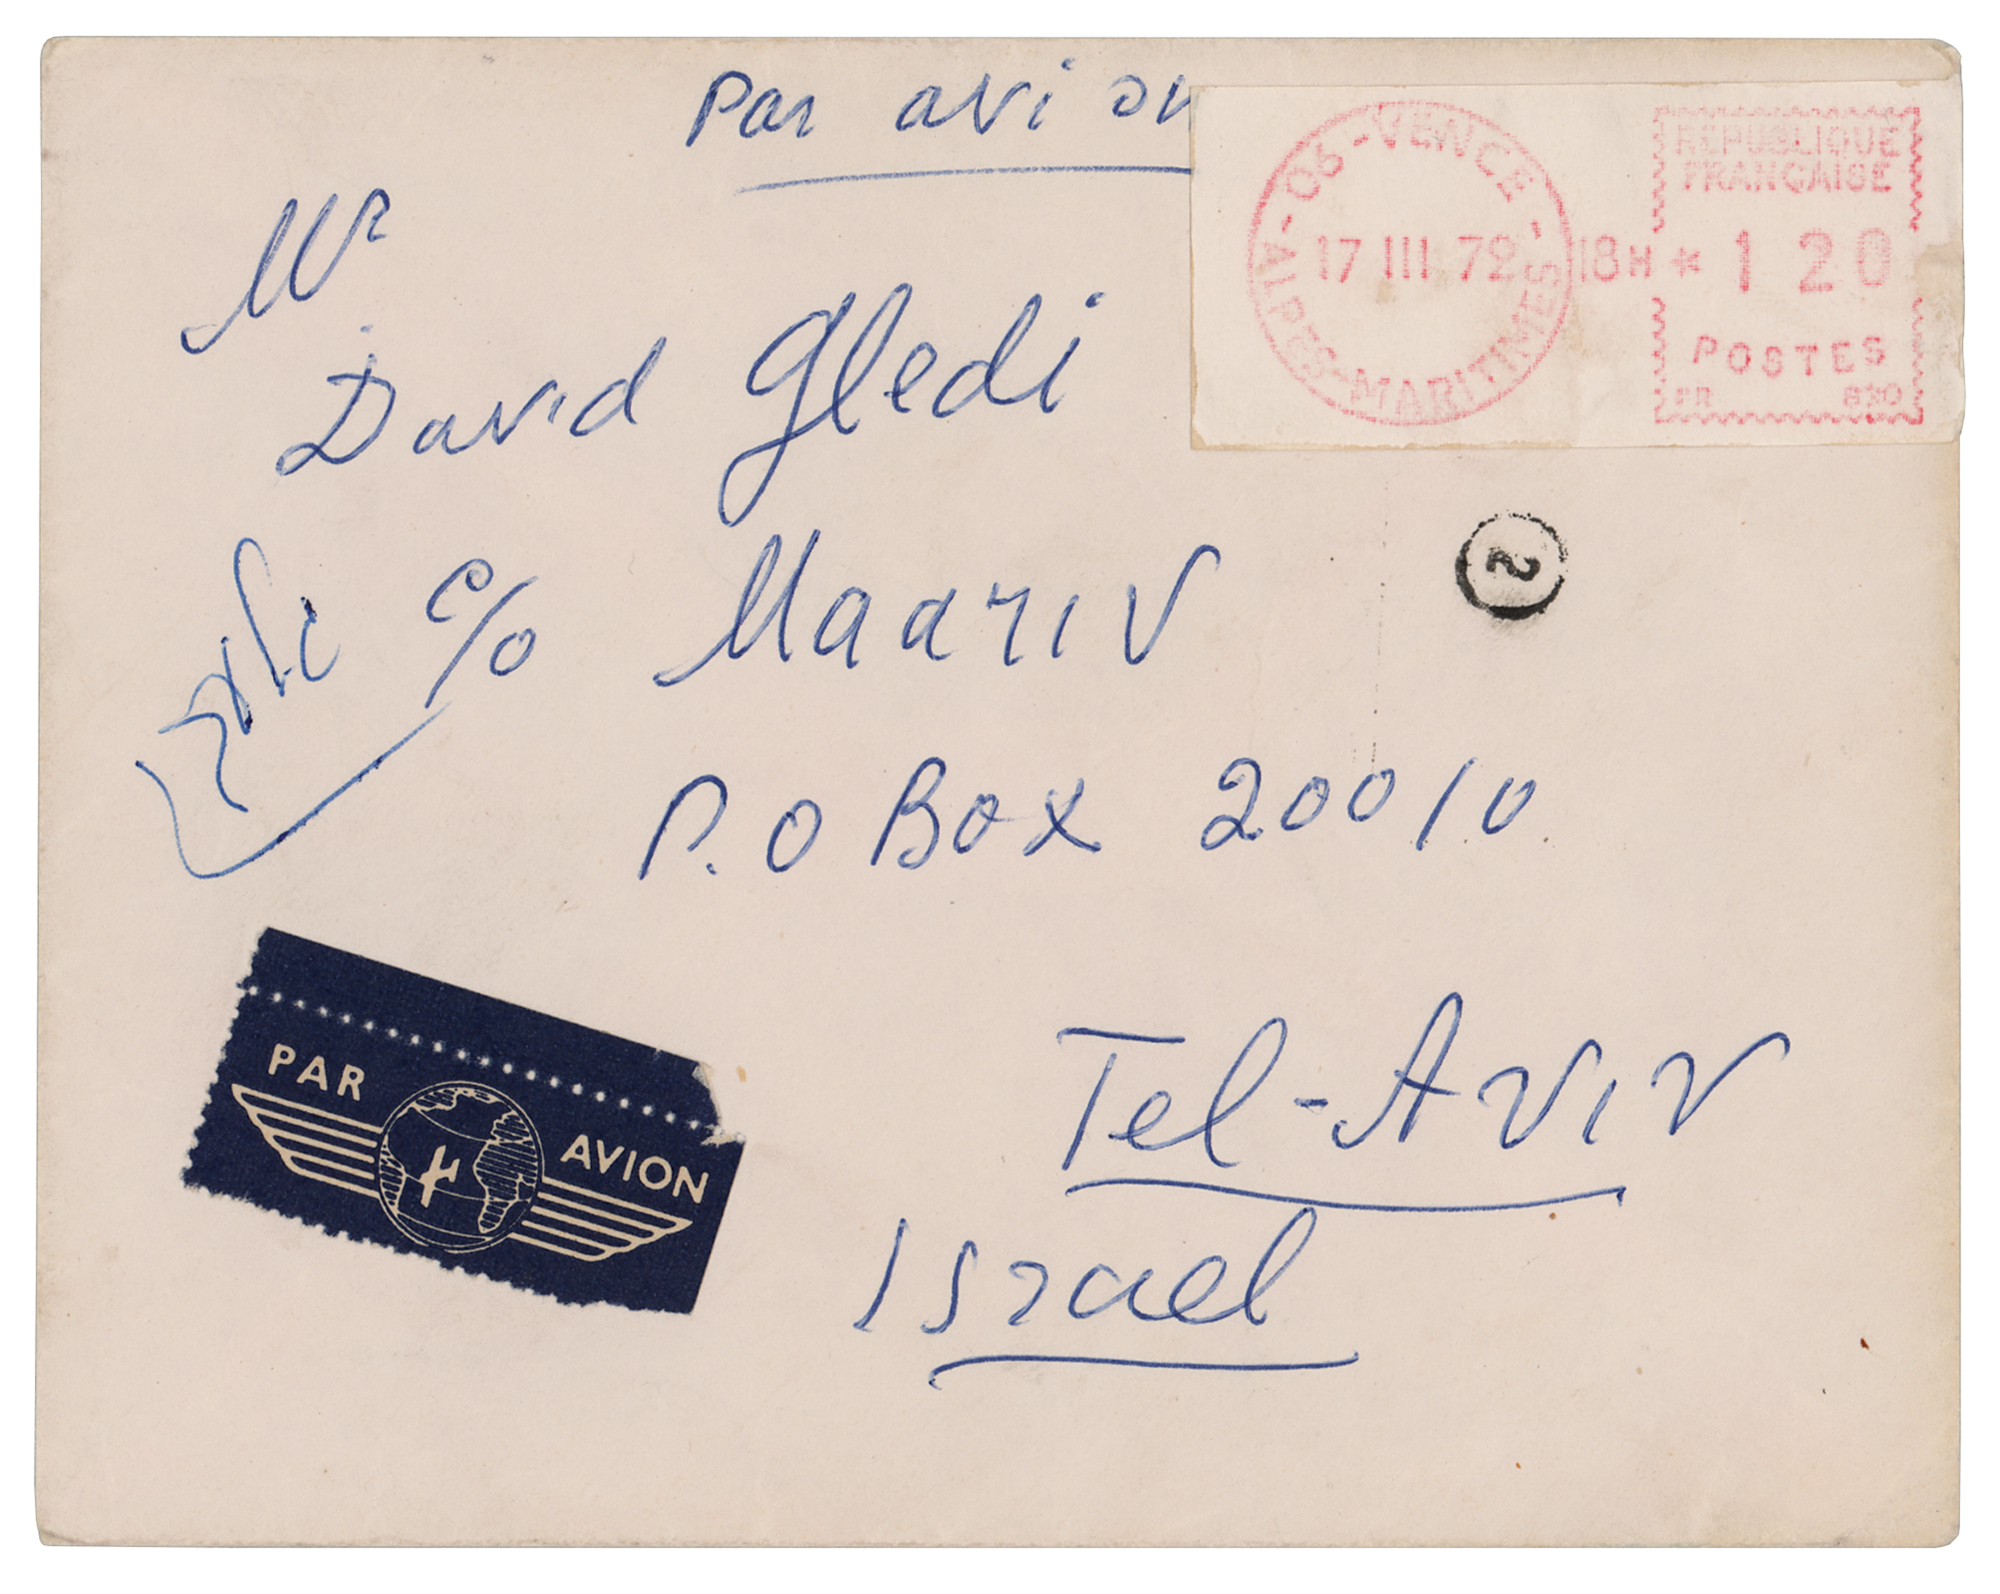 Par avion
06 - VENCE -
ALPES-MARITIMES
17 III 72 18H * 1 20
REPUBLIQUE
FRANÇAISE
POSTES
Mr
David Gledi
c/o Maariv
2
P.O Box 20010
Tel-Aviv
Israel
PAR AVION